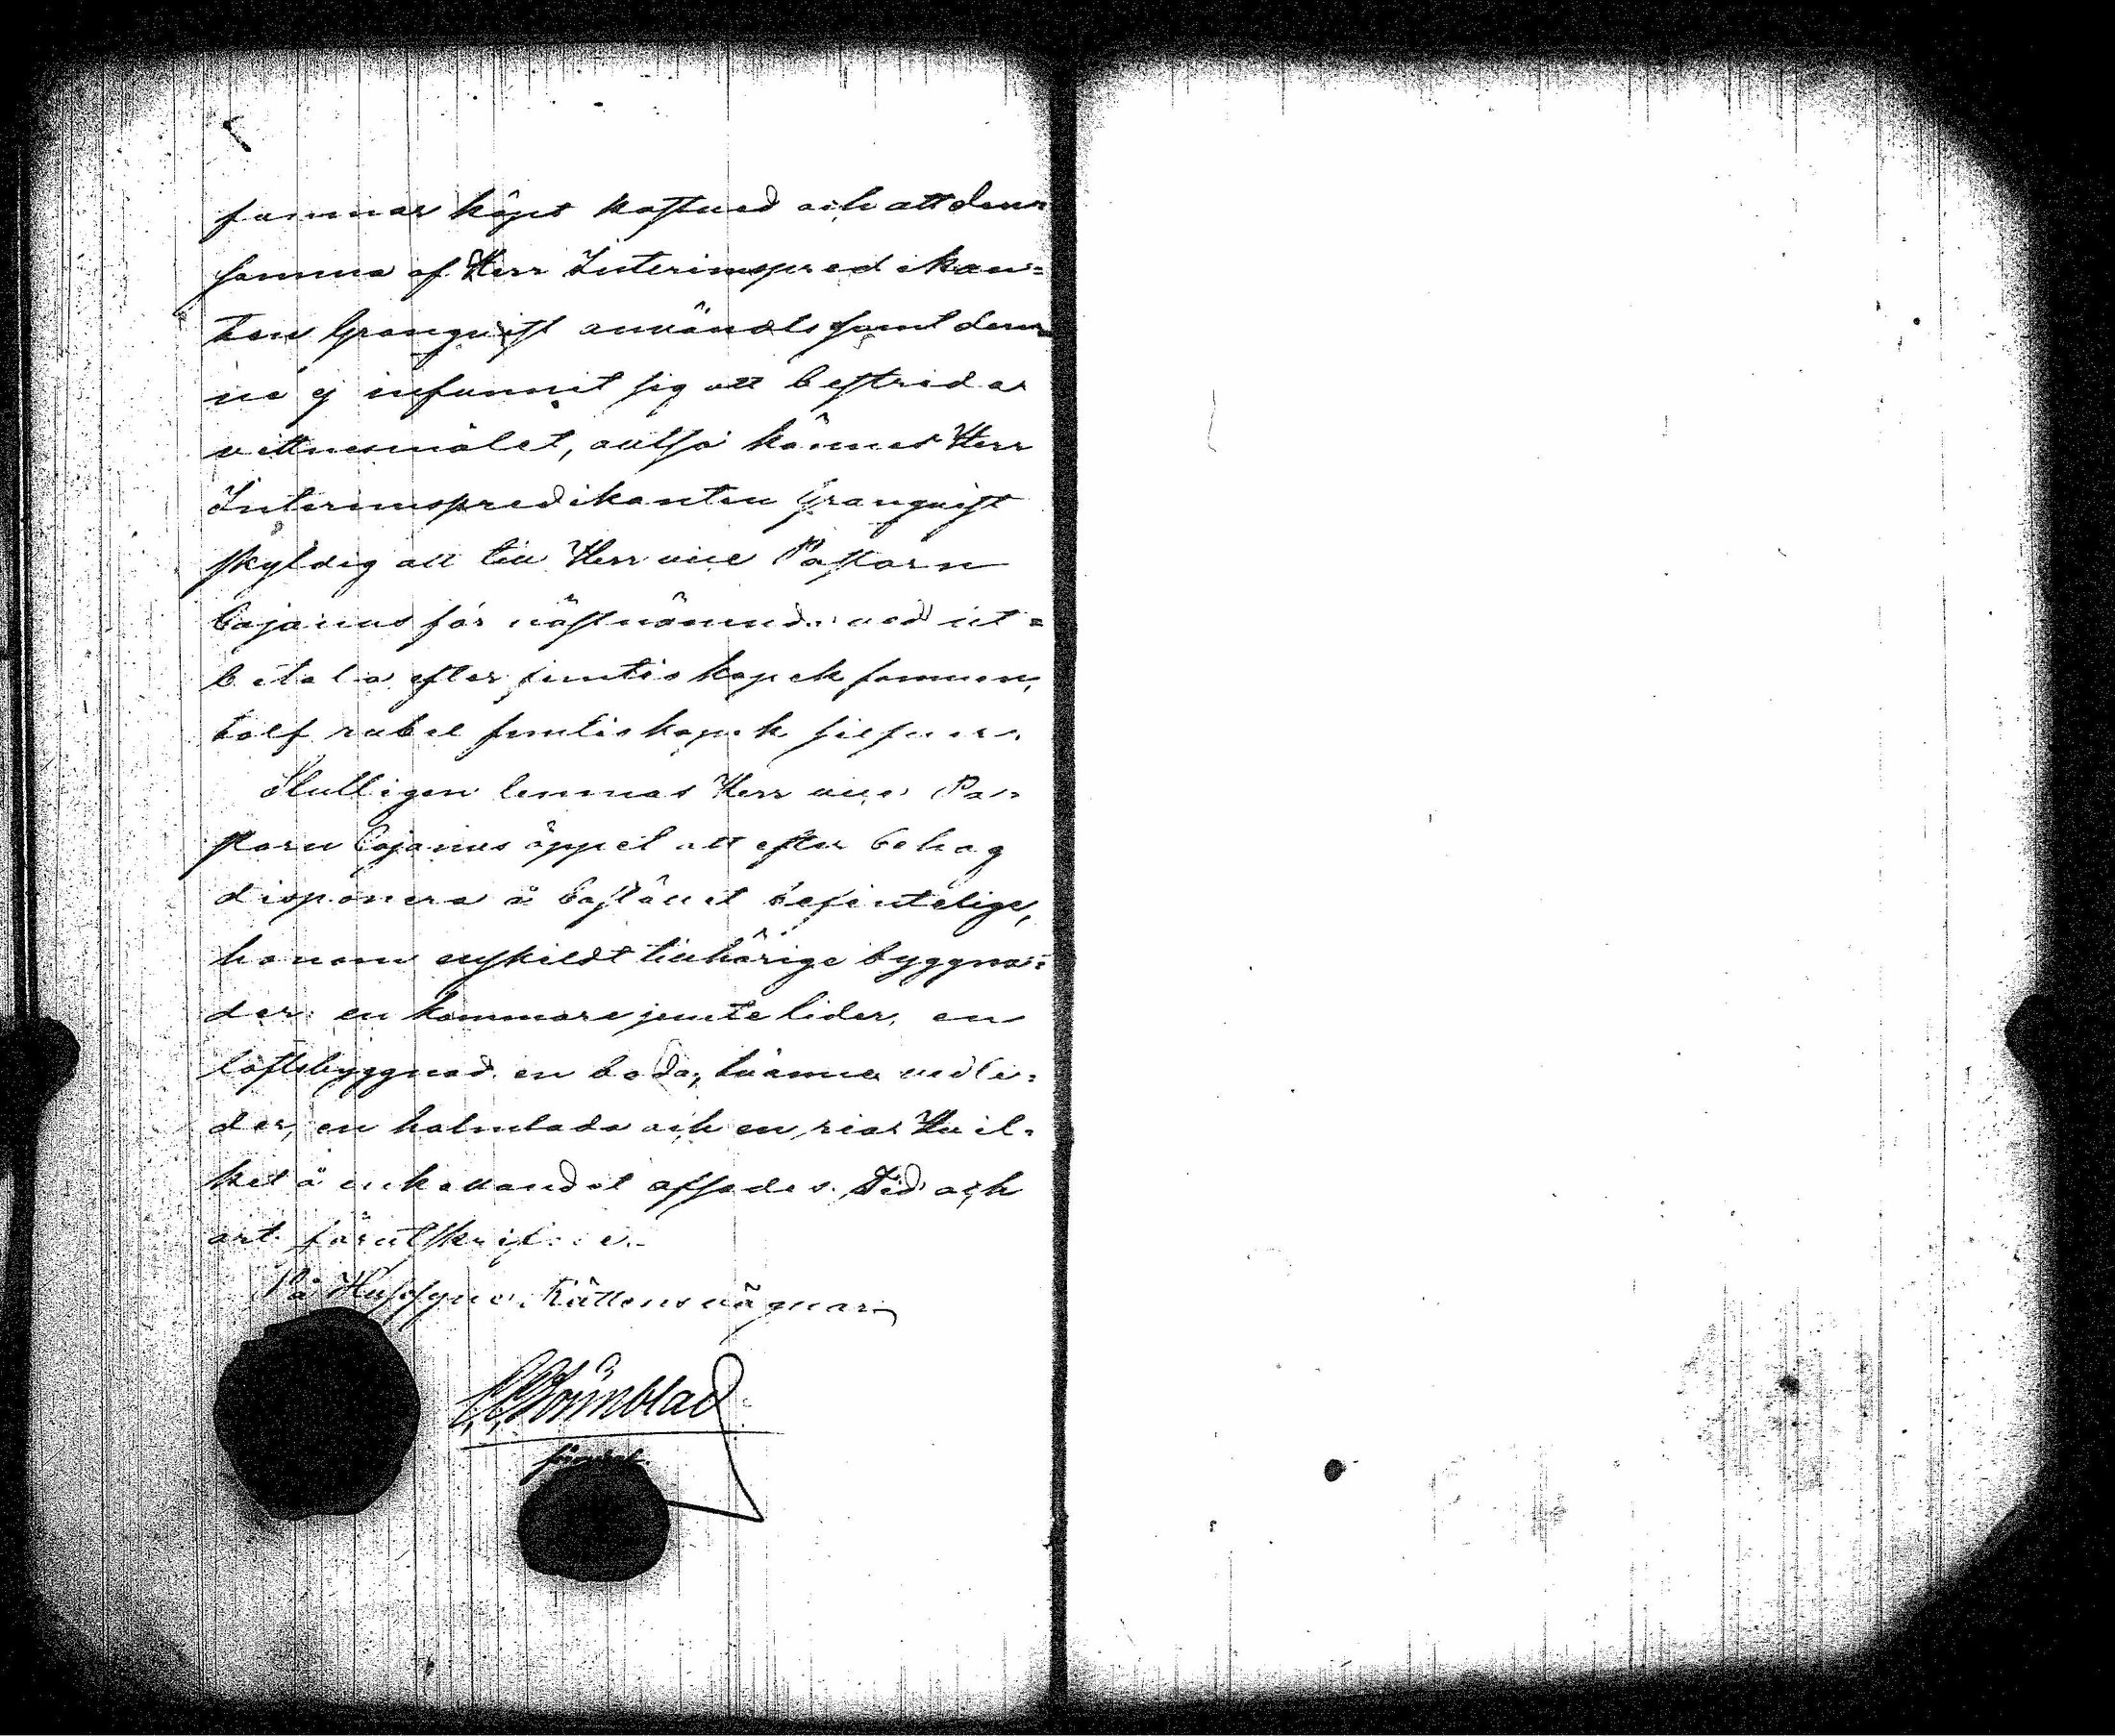 famnar köpt kastved och att den=
samma af Herr Interimspredikan=
ten Granquist användts samt den=
ne ej infunnit sig att bestrida
vittnesmålet, alltså kännes Herr
Interimspredikanten Granquist
skyldig att till Herr vice Pastorn
Cajanus för nästnämnda ved ut=
betala efter femtio kopek famnen,
tolf rubel femtio kopek silfver.
Slutligen lemnas Herr vice Pa=
storn Cajanus öppet att efter behag
disponera å bostället befintelige,
honom enskildt tillhörige byggna=
der: en kammare jemte lider, en
loftsbyggnad, en boda, tvänne vedli=
der, en halmlada och en ria. Hvil=
ket å enkallandet afsades. Tid och
ort förutskrifne.
På Husesyns Rättens vägnar
Törnblad